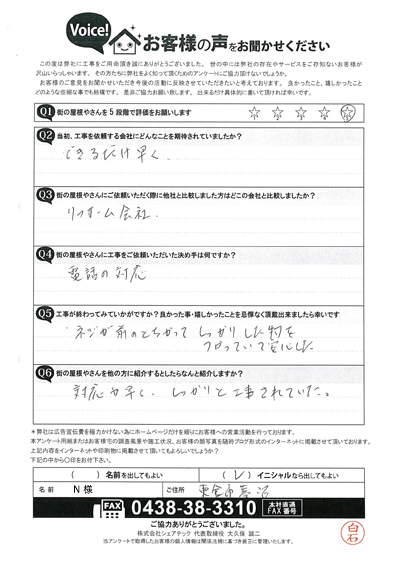 Voice!
お客様の声をお聞かせください
この度は弊社に工事をご用命頂き誠にありがとうございました。世の中には弊社の存在やサービスをご存知ないお客様が
沢山いらっしゃいます。その方たちに弊社をよく知って頂くためのアンケートにご協力頂けないでしょうか。
お客様のご意見をお聞かせいただき今後の活動に反映させていただきたいと考えております。良かったこと、嬉しかったこと
どのような些細な事でも結構です。是非ご協力お願い致します。出来るだけ具体的に書いて頂ければ幸いです。
Q1 街の屋根やさんを5段階で評価をお願いします ☆ ☆ ☆ ☆ ☆
Q2 当初、工事を依頼する会社にどんなことを期待されていましたか？
できるだけ早く
Q3 街の屋根やさんにご依頼いただく際に他社と比較しました方はどこの会社と比較しましたか？
リフォーム会社
Q4 街の屋根やさんに工事をご依頼いただいた決め手は何ですか？
電話の対応
Q5 工事が終わってみていかがですか？良かった事・嬉しかったことを忌憚なく頂戴出来ましたら幸いです
ネジが前のとちがって しっかりした物を
つかっていて安心した
Q6 街の屋根やさんを他の方に紹介するとしたらなんと紹介しますか？
対応が早く、しっかりと工事されていた。
＊弊社は広告宣伝費を極力かけない為にホームページだけを頼りにお客様への営業活動を行っております。
本アンケート用紙またはお客様宅の調査風景や施工状況、お客様の顔写真を随時ブログ形式のインターネットに掲載させて頂いております。
上記内容をインターネットや印刷物に掲載させて頂いてもよろしいでしょうか？
下記の中から○印をお付け下さい。
（ ）名前を出してもよい （レ）イニシャルなら出してもよい
名前 N 様 ご住所 東金市
FAX 0438-38-3310 本社直通 FAX番号
ご協力ありがとうございました。
株式会社シェアテック 代表取締役 大久保 誠二
当アンケートで取得したお客様の個人情報は関係法規に基づき厳正に管理いたします。
白石